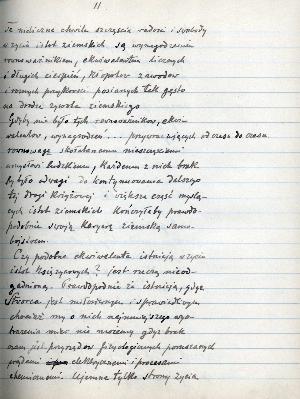 11
Te nieliczne chwile szczęścia radości i swobody
w życiu istot ziemskich są wynagrodzeniem
równoważnikiem, ekwiwalentem licznych
i długich cierpień, kłopotów zawodów
i różnych przykrości posianych tak gęsto
na drodze żywota ziemskiego
Gdyby nie było tych równoważników, ekwi-
walentów, wynagrodzeń... przywracających od czasu do czasu
równowagę skołatanemu nieszczęściami
umysłowi ludzkiemu, każdemu z nich brak
by było odwagi do kontynuowania dalszego
tej drogi krzyżowej i większa część myślą-
cych istot ziemskich kończyłaby prawdo-
podobnie swoją karyerę ziemską samo-
bójstwem.
Czy podobne ekwiwalenta istnieją w życiu
istot księżycowych? jest rzeczą nieod-
gadnioną. Prawdopodobnie że istnieją, gdyż
Stwórca jest miłosiernym i sprawiedliwym
chociaż my o nich najmniejszego wyo-
brażenia mieć nie możemy gdyż brak
nam jest przyrządów fizyologicznych poruszanych
prądami elektrycznemi i procesami
chemicznemi. Ujemne tylko strony życia